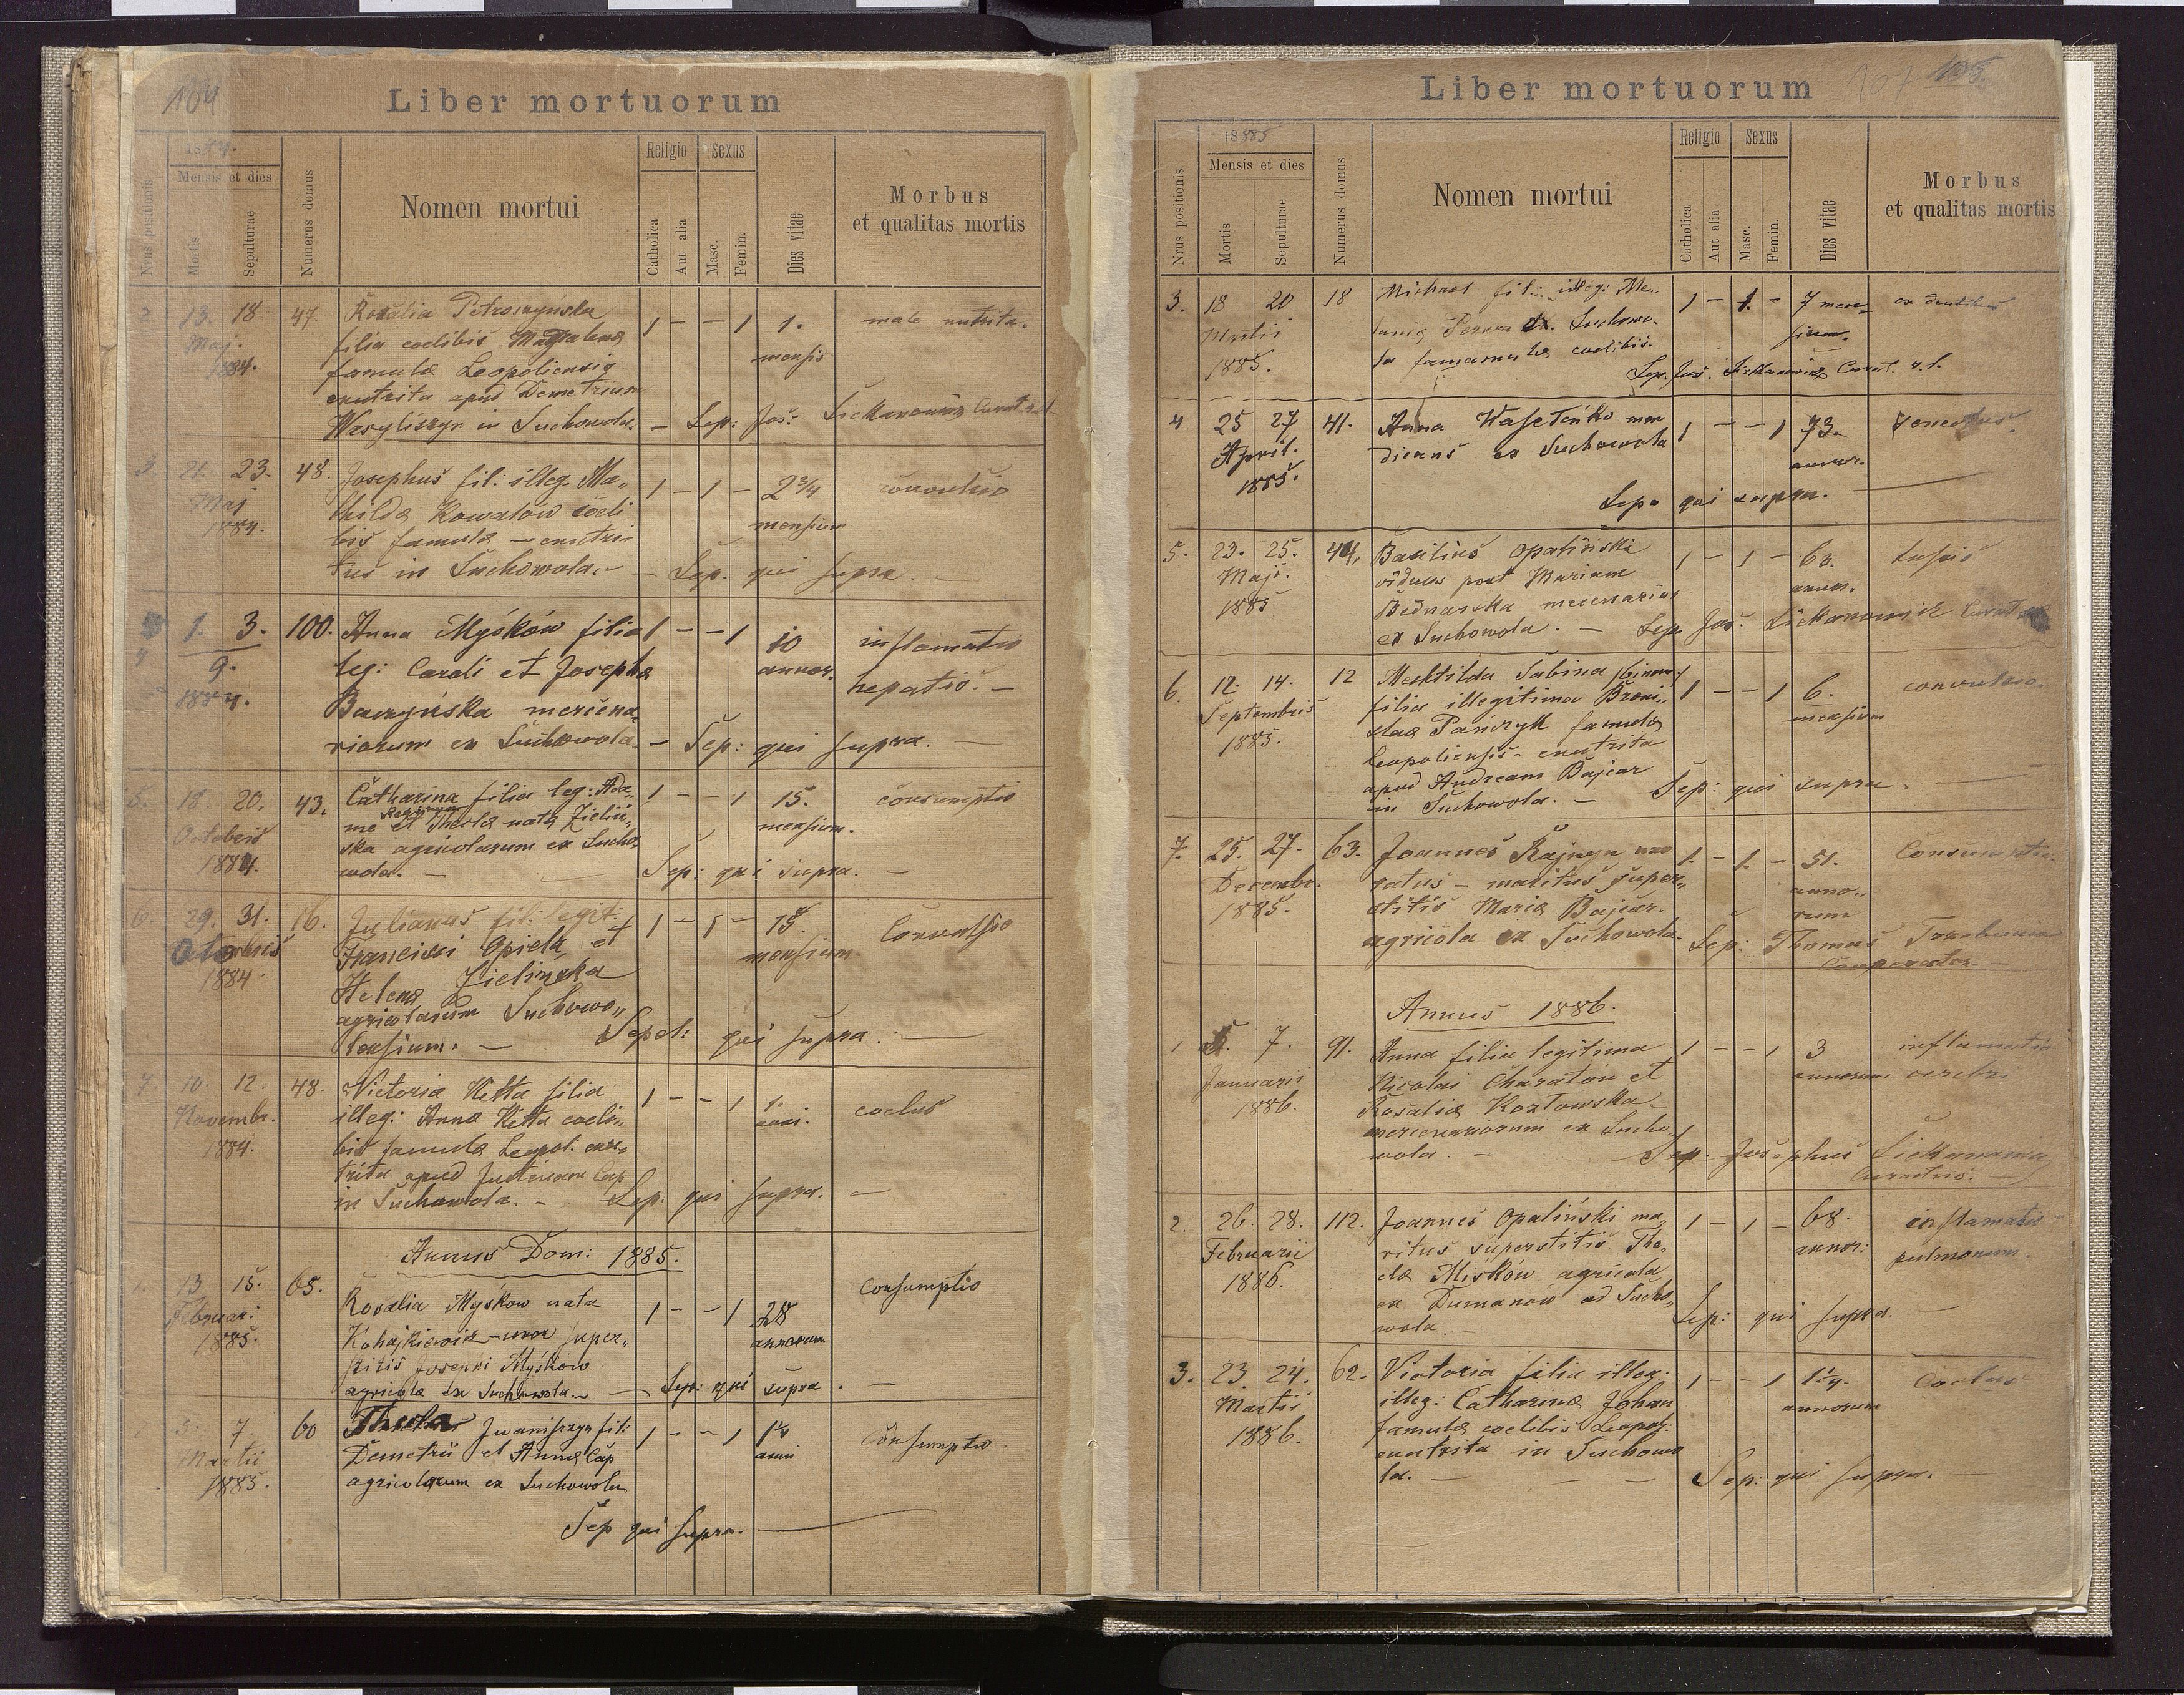 104
Liber mortuorum
1884.
Mensis et dies
Nrus positionis
Mortis
Sepulturae
Numerus domus
Nomen mortui
Religio
Catholica
Aut alia
Sexus
Masc.
Femin.
Dies vitae
Morbus
et qualitas mortis
2 13. 18 47. Rosalia Petroszyńska 1 — — 1 1. male nutrita.
Maj. filia coelibis Magdalenæ mensis
1884. famulæ Leopoliensis
enutrita apud Demetrium
Wasyliszyn in Suchowola. — Sep: Jos:
3 21. 23. 48. Josephus fil: illeg. Ma„ 1 — 1 — 2 3/4 convulsio
Maj thildæ Kowalow coeli mensium
1884. bis famulæ — enutri
tus in Suchowola. — Sep. qui supra. —
4 1. 3. 100. Anna Myśków filia 1 — — 1 10 inflamatio
9. leg: Caroli et Josephæ annor. hepatis. —
1884. Baczyńska mercena„
riorum ex Suchowola. — Sep: qui supra. —
5. 18. 20. 43. Catharina filia leg: Ada„ 1 — — 1 15. consumptio
Octobris me et Theclæ nata Zieliń„ mensium.
1884. ska agricolarum ex Sucho„
wola. — Sep: qui supra. —
6. 29. 31. 16. Julianus fil: legit: 1 — 1 — 15. Convulsio
1884. Francisci Opiela et mensium
Helenæ Zielinska
agricolarum Suchowo„
lensium. — Sepel: qui supra. —
7. 10. 12. 48. Victoria Hetta filia 1 — — 1 1. coelus
Novembr. illeg: Annæ Hetta coeli„ anni.
1884. bis famulæ Leopol. enu„
trita apud Justinam Cap
in Suchowola. — Sep. qui supra. —
Annus Dom: 1885.
1. 13 15. 65. Rosalia Myśkow nata 1 — — 1 28 Consumptio
Februar: uxor super„ annorum
1885. stitis Myśkow
agricola ex Suchowola. — Sep: qui supra. —
5. 7 60 Thecla Iwaniszyn fil: 1 — — 1 1 1/4 Consumptio
Martii Demetrii et Annæ Cap anni
1885. agricolarum ex Suchowola
Sep qui supra. —
Liber mortuorum
107 105.
1885
Mensis et dies
Nrus positionis
Mortis
Sepulturae
Numerus domus
Nomen mortui
Religio
Catholica
Aut alia
Sexus
Masc.
Femin.
Dies vitae
Morbus
et qualitas mortis
3. 18 20 18 Michael fil: illeg: Me„ 1 — 1. — 7 men„ ex dentibus
Martii laniæ ex. Suchowo„ sium.
1885. la famamulæ coelibis.
Sep. Jos.
4 25 27 41. Anna men 1 — — 1 73.
April. dicans ex Suchowola annor.
1885. Sep. qui supra. —
5. 23. 25. 44. Basilius Opaliński 1 — 1 — 63. tussis
Maji. viduus post Mariam annor.
1885 Bednarska mercenarius
ex Suchowola. — Sep. Jos:
6. 12. 14. 12 Mechtilda Sabina (binom:) 1 — — 1 6. convulsio.
Septembris filia illegitima Broni„ mensium
1885. slaæ Pańczyk famulæ
Leopoliensis — enutrita
apud Andream Bajcar
in Suchowola. — Sep: qui supra. —
7. 25. 27. 63. Joannes Rajzyn uxo 1. — 1. — 51. Consumptio
Decembr. ratus — maritus super„ anno„
1885. stitis Mariæ Bajcar. rum
agricola ex Suchowola Sep: Thomas
Cooperator. —
Annus 1886.
1 5. 7. 91. Anna filia legitima 1 — — 1 3 inflamatio
Januarii Nicolai Charaton et annorum cerebri
1886. Rosaliæ Kozłowska.
mercenariorum ex Sucho„
wola. — Sep. Josephus
Curatus. —
2. 26. 28. 112. Joannes Opaliński ma„ 1 — 1 — 68. inflamatio
Februarii ritus superstitis The„ annor: pulmonum.
1886. clæ Miśków agricola
ex Dumanow ad Sucho„
wola. — Sep: qui supra. —
3. 23. 24. 62. Victoria filia illeg: 1 — — 1 1 1/4. Coelus
Martii illeg: Catharinæ Johan annorum
1886. famulæ coelibis Leopol:
enutrita in Suchowo
la. — Sep: qui supra. —